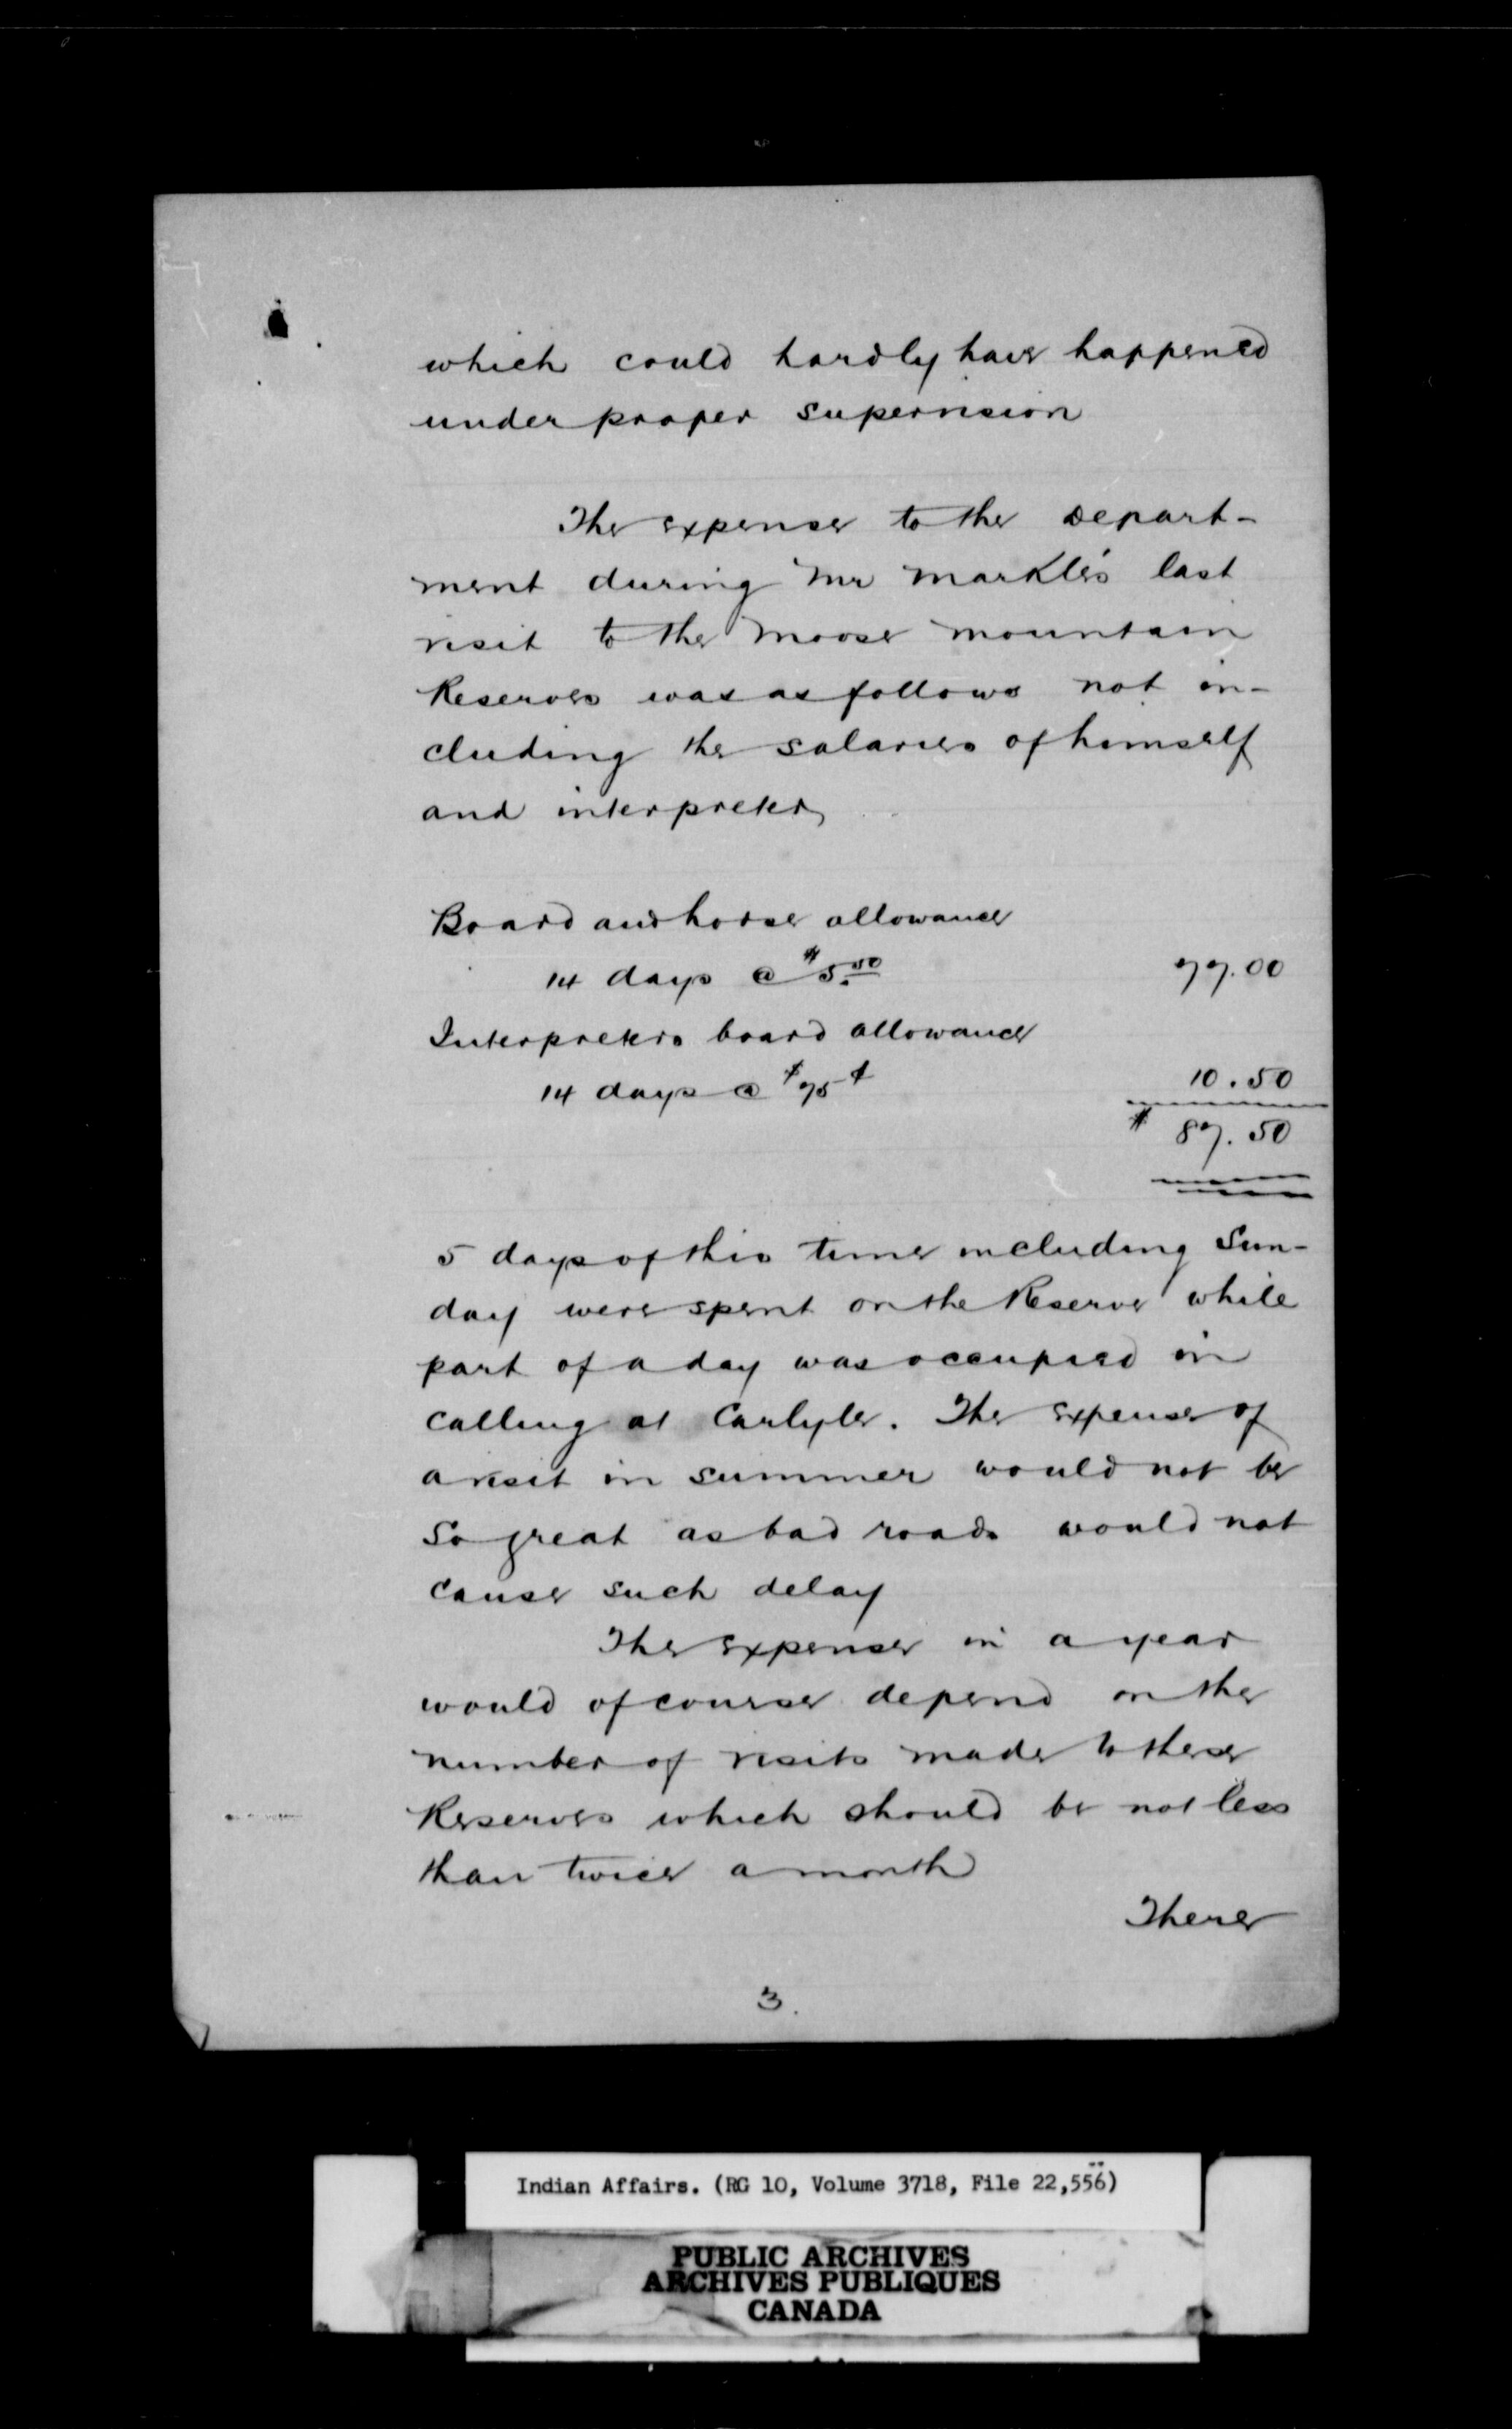 which could hardly have happened
under proper supervision
The expense to the Depart-
ment during Mr Markle's last
visit to the Moose Mountain
Reserves was as follows not in-
cluding the salaries of himself
and interpreter
Board and horse allowance
14 days @ $5.50 77.00
Interpreters board allowance
14 days @ 75¢ 10.50
$ 87.50
5 days of this time including Sun-
day were spent on the Reserve while
part of a day was occupied in
calling at Carlyle. The expense of
a visit in summer would not be
so great as bad roads would not
cause such delay
The expense in a year
would of course depend on the
number of visits made to these
Reserves which should be not less
than twice a month
There
3.
Indian Affairs. (RG 10, Volume 3718, File 22,556)
PUBLIC ARCHIVES
ARCHIVES PUBLIQUES
CANADA